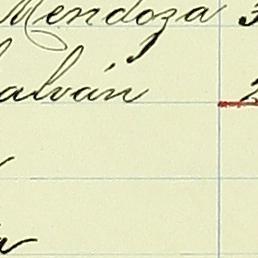 Mendoza 3
alván 2
a